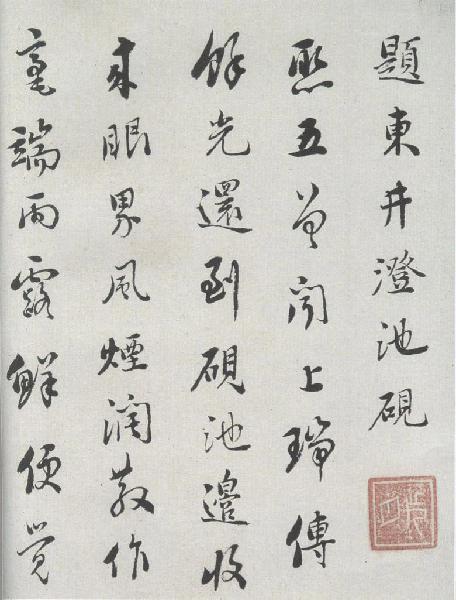 題東井澄池硯
聚五曾聞上瑞傳
餘光還到硯池邊收
來眼界風煙潤散作
毫端雨露鮮便覺